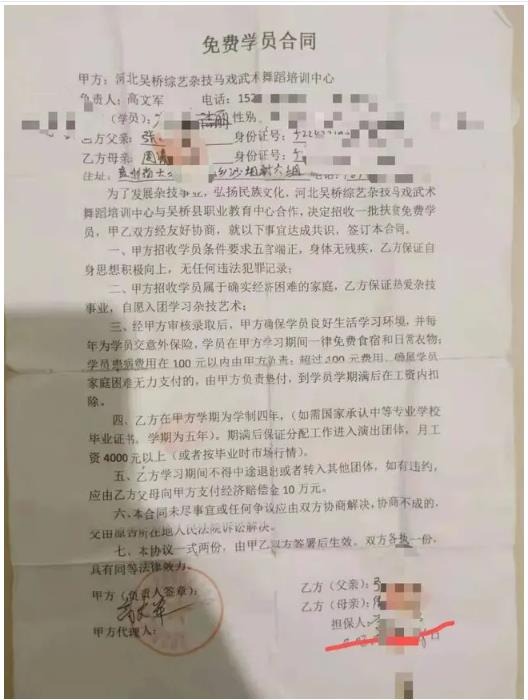 免费学员合同
甲方：河北吴桥综艺杂技马戏武术舞蹈培训中心
负责人：高文军 电话：152
（学员）： 洁丽 性别
乙方父亲：张 身份证号：
乙方母亲：周 身份证号：
住址： 电话：
为了发展杂技事业，弘扬民族文化，河北吴桥综艺杂技马戏武术
舞蹈培训中心与吴桥县职业教育中心合作，决定招收一批扶贫免费学
员，甲乙双方经友好协商，就以下事宜达成共识，签订本合同。
一、甲方招收学员条件要求五官端正，身体无残疾，乙方保证自
身思想积极向上，无任何违法犯罪记录；
二、甲方招收学员属于确实经济困难的家庭，乙方保证热爱杂技
事业，自愿入团学习杂技艺术；
三、经甲方审核录取后，甲方确保学员良好生活学习环境，并每
年为学员交意外保险，学员在甲方学习期间一律免费食宿和日常衣物；
学员患病费用在 100 元以内由甲方负责；超过 100 元费用，确属学员
家庭困难无力支付的，由甲方负责垫付，到学员学期满后在工资内扣
除。
四、乙方在甲方学期为学制四年，（如需国家承认中等专业学校
毕业证书，学期为五年）。期满后保证分配工作进入演出团体，月工
资 4000 元以上（或者按毕业时市场行情）。
五、乙方学习期间不得中途退出或者转入其他团体，如有违约，
应由乙方父母向甲方支付经济赔偿金 10 万元。
六、本合同未尽事宜或任何争议应由双方协商解决，协商不成的，
交由原告所在地人民法院诉讼解决。
七、本协议一式两份，由甲乙双方签署后生效。双方各执一份，
具有同等法律效力。
甲方（负责人签章）： 乙方（父亲）：
高文军 乙方（母亲）：
担保人：
甲方代理人：